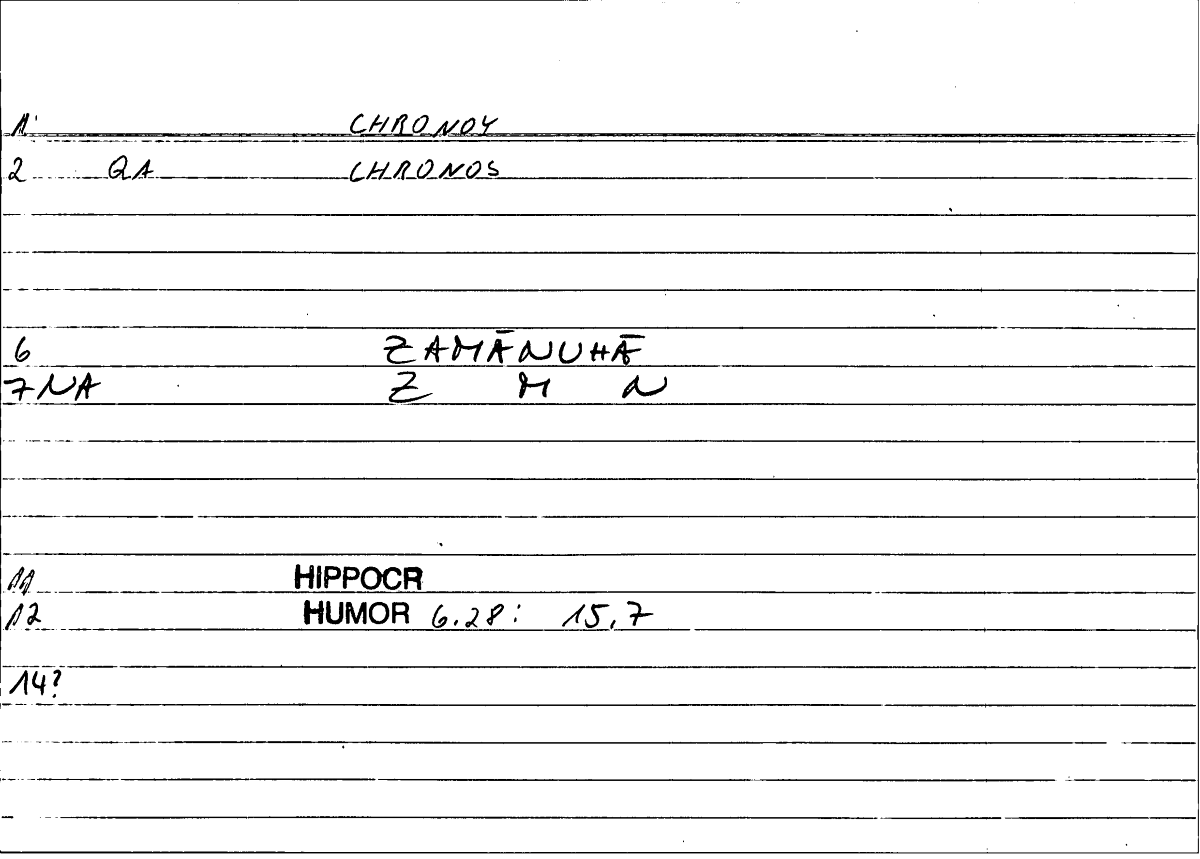 1 CHRONOY
2 QA CHRONOS
6 ZAMĀNUHĀ
7 NA Z M N
11 HIPPOCR
12 HUMOR 6.28: 15,7
14?